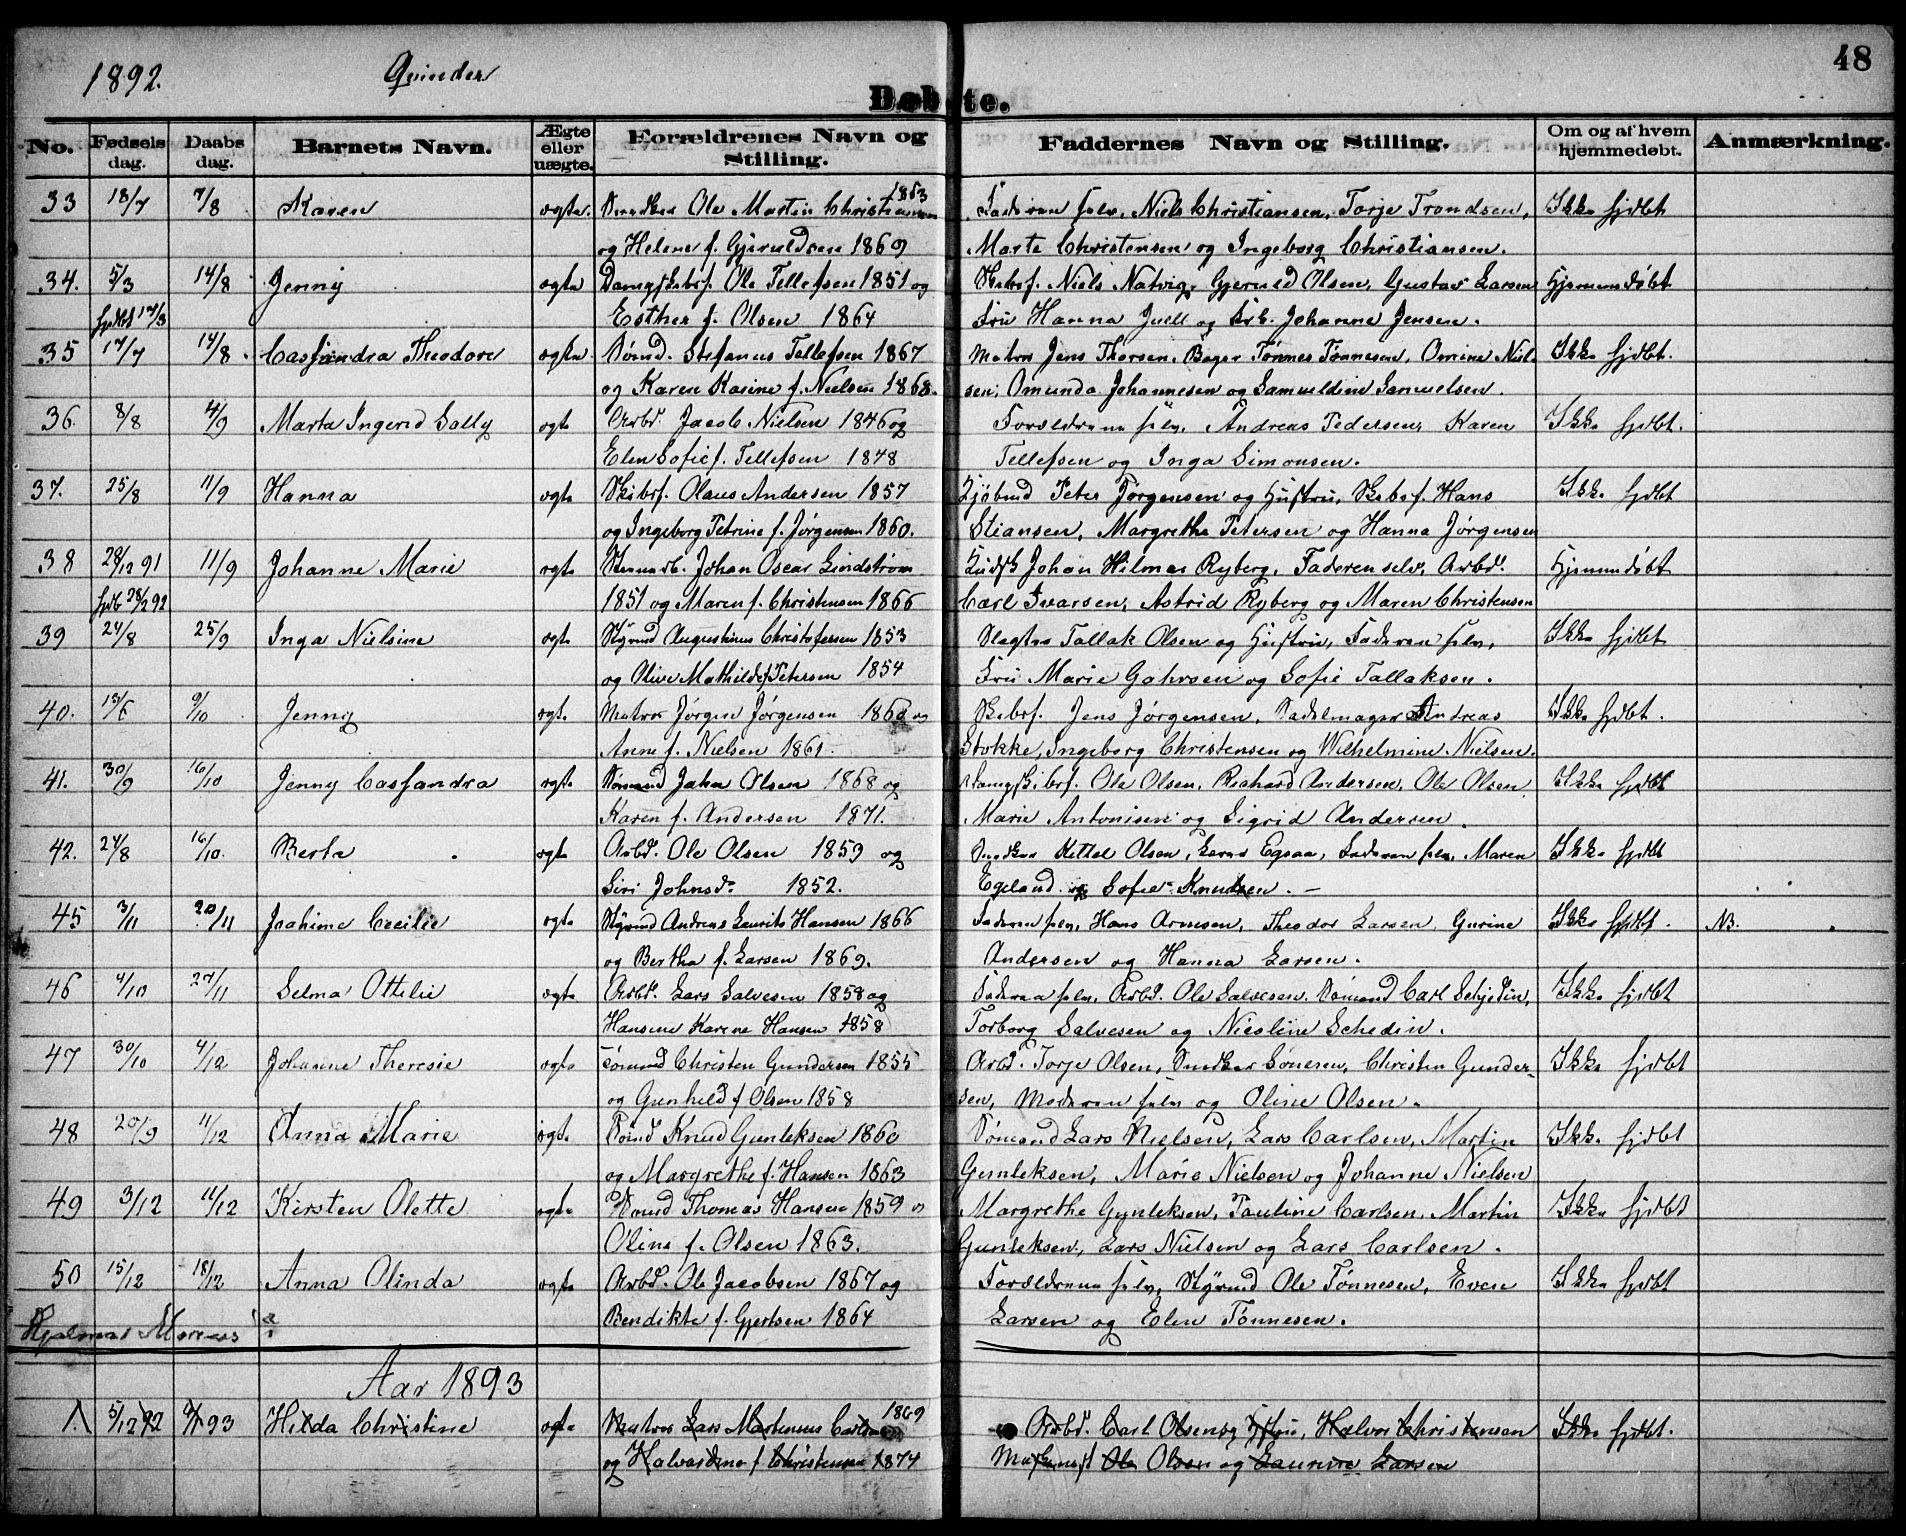 48
1892. Qvinder
Døbte.
No. Fødsels dag. Daabs dag. Barnets Navn. Ægte eller uægte. Forældrenes Navn og Stilling. Faddernes Navn og Stilling. Om og af hvem hjemmedøbt. Anmærkning.
33 18/7 7/8 Karen ægte. Snedker Ole Martin Christiansen 1863 Faderen selv, Niels Christiansen, Torje Trondsen, Ikke hjdbt
og Helene f. Gjeruldsen 1869 Marte Christensen og Ingeborg Christiansen.
34. 5/3 14/8 Jenny ægte Dampskibsf. Ole Tellefsen 1851 og Skibsf. Niels Natvig, Gjeruld Olsen, Gustav Larsen Hjemmedøbt
hjdbt 17/3 Esther f. Olsen 1864 Fru Hanna Juell og Frk. Johanne Jensen.
35 17/7 14/8. Cassandra Theodore ægte. Sømd. Stefanus Tellefsen 1867 Matros Jens Thorsen, Bager Tønnes Tønnesen, Omine Niel- Ikke hjdbt.
og Karen Kasine f. Nielsen 1868. sen, Omunda Johannesen og Samueldine Samuelsen.
36 8/8 4/9 Marta Ingerid Sally ægte Arbd. Jacob Nielsen 1846 og Forældrene selv, Andreas Pedersen, Karen Ikke hjdbt.
Elen Sofie f. Tellefsen 1848 Tellefsen og Inga Simonsen.
37. 25/8 11/9 Hanna ægte Skibsf. Olaus Andersen 1857 Kjøbmd Peter Jørgensen og Hustru, Skibsf. Hans Ikke hjdbt
og Ingeborg Petrine f. Jørgensen 1860. Stiansen, Margrethe Petersen og Hanna Jørgensen
38 28/12 91 11/9 Johanne Marie ægte Johan Oscar Lindstrøm Johan Hilmar Ryberg, Faderen selv, Arbd. Hjemmedøbt
hjdb 28/2 92 1851 og Maren f. Christensen 1866 Carl Ivarsen, Astrid Ryberg og Maren Christensen
39 24/8 25/9 Inga Nielsine ægte Styrmd Augustinus Christofersen 1853 Slagter Tallak Olsen og Hustru, Faderen selv, Ikke hjdbt
og Olive Mathilde f. Petersen 1854 Fru Marie Gahrsen og Sofie Tallaksen.
40. 13/6 9/10 Jenny ægte Matros Jørgen Jørgensen 1860 og Skibsf. Jens Jørgensen, Sadelmager Andreas Ikke hjdbt.
Anne f. Nielsen 1861. Stokke, Ingeborg Christensen og Wilhelmine Nielsen.
41. 30/9 16/10 Jenny Cassandra ægte Sømand Jahn Olsen 1868 og Dampskibsf. Ole Olsen, Richard Andersen, Ole Olsen Ikke hjdbt
Karen f. Andersen 1871. Marie Antonisen og Sigrid Andersen.
42. 24/8 16/10. Berta ægte Arbd. Ole Olsen 1859 og Snedker Kittel Olsen, Egeaa, Faderen selv, Maren Ikke hjdbt
Siri Johnsd. 1852. Egeland og Sofie Knudsen. —
45 3/11 20/11 Joahime Cecilie ægte Styrmd Andreas Laurits Hansen 1866 Faderen selv, Hans Arnesen, Theodor Larsen, Gurine Ikke hjdbt. NB.
og Bertha f. Larsen 1869. Andersen og Hanna Larsen.
46 4/10 27/11 Selma Ottilie ægte Arbd. Lars Salvesen 1858 og Faderen selv, Arbd. Ole Salvesen, Sømand Carl Schjedin, Ikke hjdbt
Hansine Karene Hansen 1858 Torborg Salvesen og Nicoline Schedin.
47 30/10 4/12 Johanne Theresie ægte Sømand Christen Gundersen 1855 Arbd. Torje Olsen, Snedker Sønesen, Christen Gunder- Ikke hjdbt
og Gunhild f Olsen 1858 sen, Moderen selv og Oline Olsen.
48 20/9 11/12 Anna Marie ægte. Sømd Knud Gunleksen 1860 Sømand Lars Nielsen, Lars Carlsen, Martin Ikke hjdbt
og Margrethe f. Hansen 1863 Gunleksen, Marie Nielsen og Johanne Nielsen
49 3/12 11/12 Kirsten Olette ægte Sømd Thomas Hansen 1859 og Margrethe Gunleksen, Pauline Carlsen, Martin Ikke hjdbt
Oline f. Olsen 1863. Gunleksen, Lars Nielsen og Lars Carlsen.
50 15/12 18/12 Anna Olinda ægte Arbd. Ole Jacobsen 1867 og Forældrene selv, Styrmd Ole Tønnesen, Even Ikke hjdbt
Bendikte f. Gjertsen 1864 Larsen og Elen Tønnesen.
Hjalmar
Aar 1893
1. 5/12 92 93 Hilda Christine ægte Matros Lars Martenius Carlsen 1869 Arbd. Carl Olsen og Hustru, Halvor Christensen Ikke hjdbt.
og Halvardine f Christensen 1874 Ole Olsen og Laurine Larsen